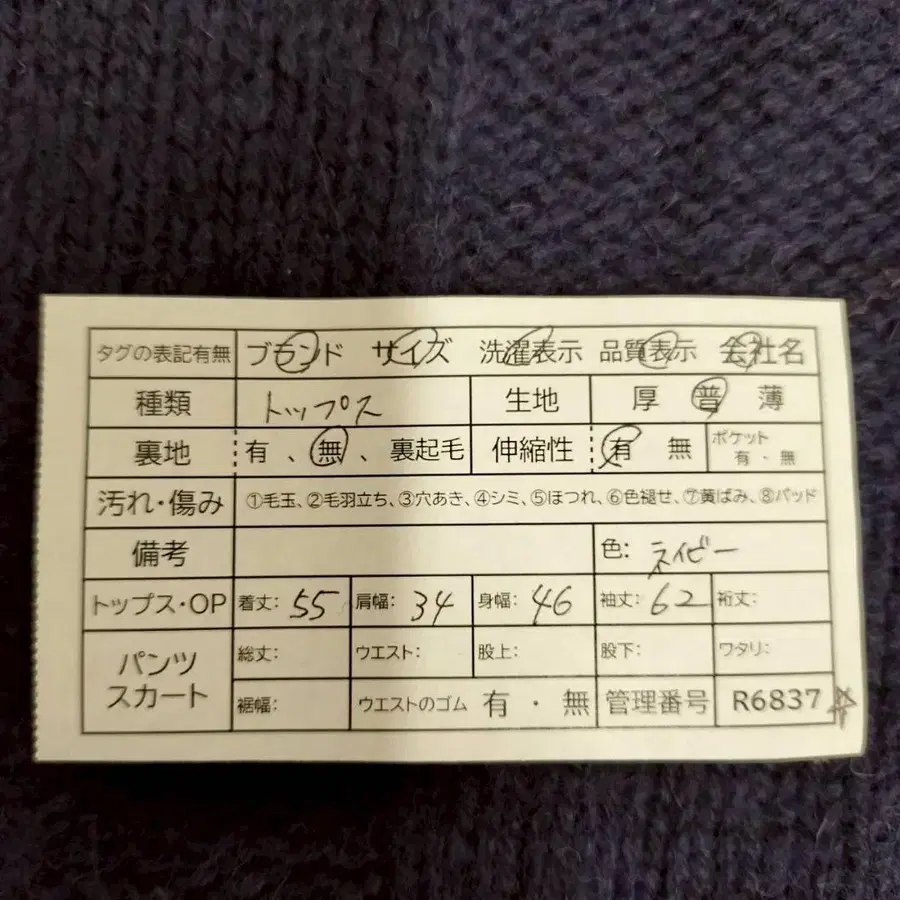 タグの表記有無 ブランド サイズ 洗濯表示 品質表示 会社名
種類 トップス 生地 厚 普 薄
裏地 有 、 無 、 裏起毛 伸縮性 有 無 ポケット 有・無
汚れ・傷み ①毛玉、②毛羽立ち、③穴あき、④シミ、⑤ほつれ、⑥色褪せ、⑦黄ばみ、⑧パッド
備考 色: ネイビー
トップス・OP 着丈: 55 肩幅: 34 身幅: 46 袖丈: 62 裄丈:
パンツ スカート 総丈: ウエスト: 股上: 股下: ワタリ:
裾幅: ウエストのゴム 有 ・ 無 管理番号 R6837☆